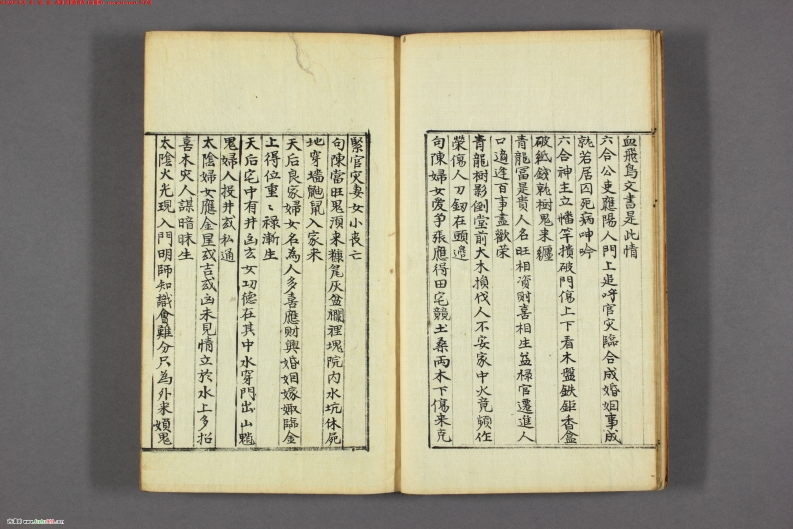 血飛鳥文書是此情
六合公吏羅陽人門上追呼官灾臨合成婚姻事成
就若居囚死病呻吟
六合神主立幡竿損破門傷上下看木盤鉄鉅香盒
破紙錢執樹鬼来纏
青龍當是貴人名旺相資财喜相生益禄官遷進人
口適逢百事盡歡荣
青龍樹影倒堂前大木損伐人不安家中火竟頻作
荣傷人刀釰在頭邊
句陳婦女愛爭張應得田宅競土桑兩木下傷来克
緊官灾妻女小喪亡
句陳當旺鬼須来糠篼灰盆欄裡塊院内水坑休死
地穿墻鼬鼠入家来
天后良家婦女名為人多喜應财興婚姻嫁娵臨金
上得位重〻禄漸生
天后宅中有井凶玄女功德在其中水穿門出山魈
鬼婦人投井或私通
太陰婦女應金星或吉或凶未見情立於水上多招
喜木灾人謀暗昧生
太陰火光現入門明師知識會難分只為外来頻鬼